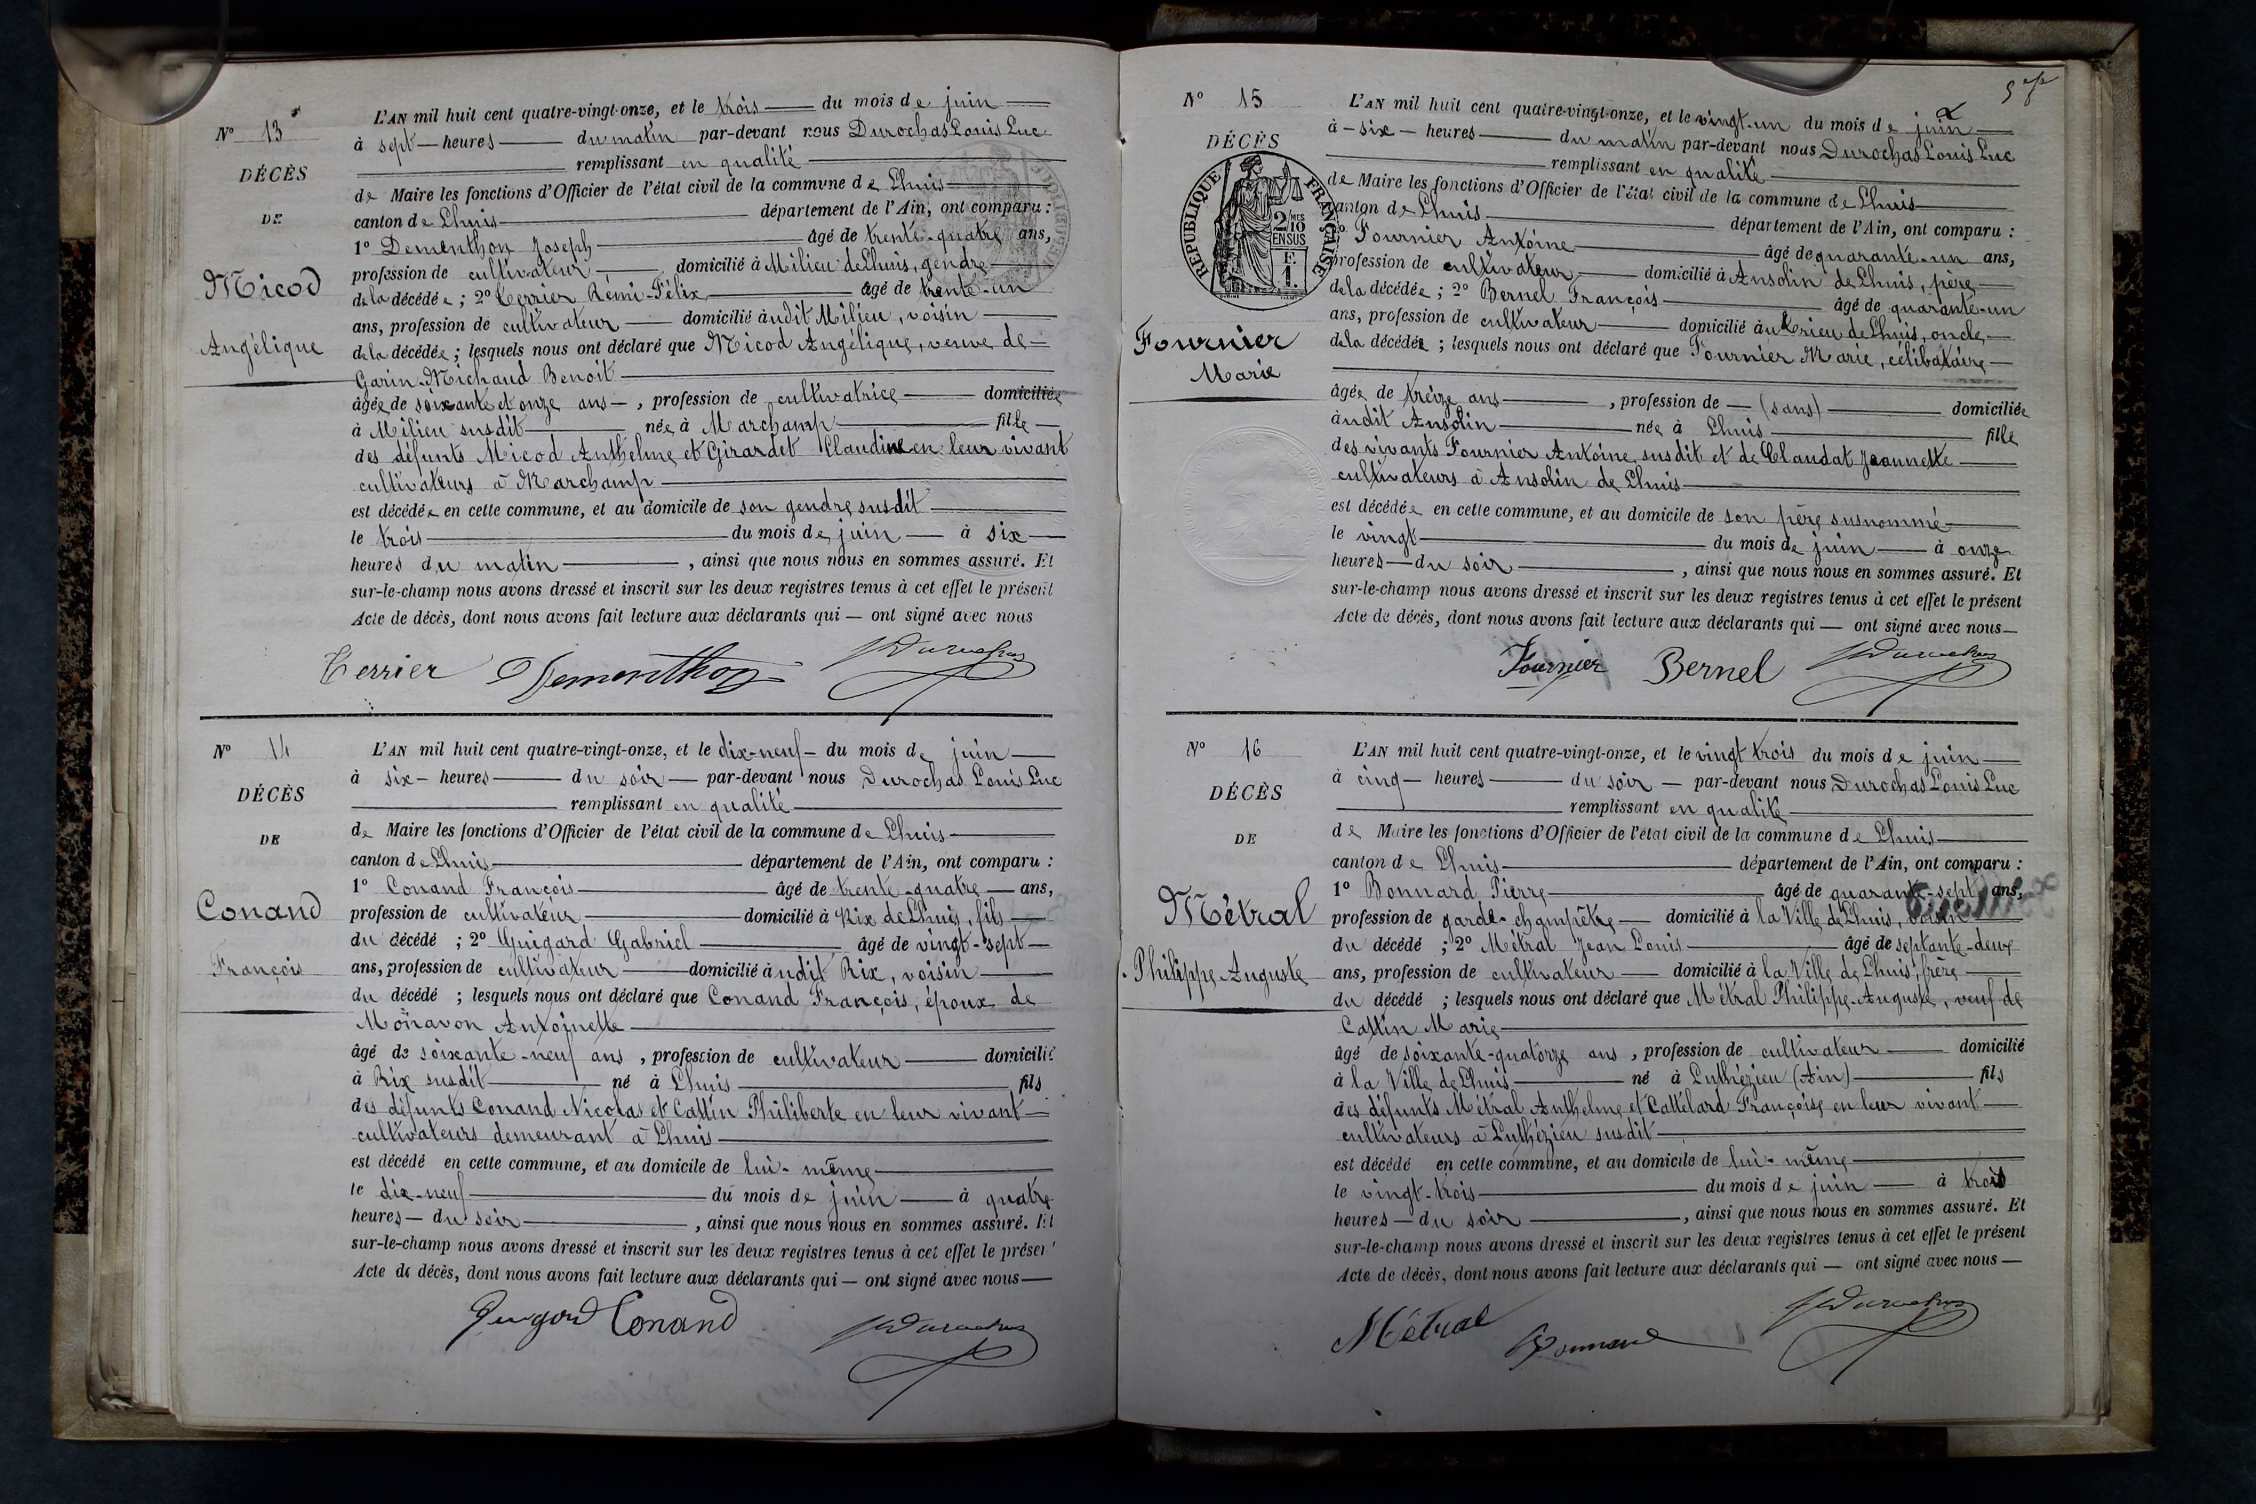 N° 13
DÉCÈS
DE
Micod
Angélique
L'AN mil huit cent quatre-vingt-onze, et le trois du mois de juin
à sept heures du matin par-devant nous Durochas Louis Luc
remplissant en qualité
de Maire les fonctions d'Officier de l'état civil de la commune de Lhuis
canton de Lhuis département de l'Ain, ont comparu :
1° Dementhon Joseph âgé de trente-quatre ans,
profession de cultivateur, domicilié à Milieu de Lhuis, gendre
de la décédée ; 2° Terrier Rémi-Félix âgé de trente-un
ans, profession de cultivateur domicilié àudit Milieu, voisin
de la décédée ; lesquels nous ont déclaré que Micod Angélique, veuve de
Garin-Michaud Benoit
âgée de soixante et onze ans, profession de cultivatrice domiciliée
à Milieu susdit née à Marchamp fille
des défunts Micod Anthelme et Girardet Claudine en leur vivant
cultivateurs à Marchamp
est décédée en cette commune, et au domicile de son gendre susdit
le trois du mois de juin à six
heures du matin, ainsi que nous nous en sommes assuré. Et
sur-le-champ nous avons dressé et inscrit sur les deux registres tenus à cet effet le présent
Acte de décès, dont nous avons fait lecture aux déclarants qui — ont signé avec nous
Terrier Dementhon Durochas
N° 14
DÉCÈS
DE
Conand
François
L'AN mil huit cent quatre-vingt-onze, et le dix-neuf du mois de juin
à six heures du soir par-devant nous Durochas Louis Luc
remplissant en qualité
de Maire les fonctions d'Officier de l'état civil de la commune de Lhuis
canton de Lhuis département de l'Ain, ont comparu :
1° Conand François âgé de trente-quatre ans,
profession de cultivateur domicilié à Rix de Lhuis, fils
du décédé ; 2° Guigard Gabriel âgé de vingt-sept
ans, profession de cultivateur domicilié àudit Rix, voisin
du décédé ; lesquels nous ont déclaré que Conand François, époux de
Monavon Antoinette
âgé de soixante-neuf ans, profession de cultivateur domicilié
à Rix susdit né à Lhuis fils
des défunts Conand Nicolas et Cattin Philiberte en leur vivant
cultivateurs demeurant à Lhuis
est décédé en cette commune, et au domicile de lui-même
le dix-neuf du mois de juin à quatre
heures du soir, ainsi que nous nous en sommes assuré. Et
sur-le-champ nous avons dressé et inscrit sur les deux registres tenus à cet effet le présent
Acte de décès, dont nous avons fait lecture aux déclarants qui — ont signé avec nous
Guigard Conand Durochas
N° 15
DÉCÈS
RÉPUBLIQUE FRANÇAISE
2/10 MES
EN SUS
F.
1.
Fournier
Marie
L'AN mil huit cent quatre-vingt-onze, et le vingt-un du mois de juin
à six heures du matin par-devant nous Durochas Louis Luc
remplissant en qualité
de Maire les fonctions d'Officier de l'état civil de la commune de Lhuis
canton de Lhuis département de l'Ain, ont comparu :
1° Fournier Antoine âgé de quarante-un ans,
profession de cultivateur domicilié à Ansolin de Lhuis, père
de la décédée ; 2° Bernel François âgé de quarante-un
ans, profession de cultivateur domicilié àu Crieu de Lhuis, oncle
de la décédée ; lesquels nous ont déclaré que Fournier Marie, célibataire
âgée de treize ans, profession de (sans) domiciliée
àudit Ansolin née à Lhuis fille
des vivants Fournier Antoine susdit et de Claudat Jeannette
cultivateurs à Ansolin de Lhuis
est décédée en cette commune, et au domicile de son père susnommé
le vingt du mois de juin à onze
heures du soir, ainsi que nous nous en sommes assuré. Et
sur-le-champ nous avons dressé et inscrit sur les deux registres tenus à cet effet le présent
Acte de décès, dont nous avons fait lecture aux déclarants qui — ont signé avec nous
Fournier Bernel Durochas
N° 16
DÉCÈS
DE
Métral
Philippe-Auguste
L'AN mil huit cent quatre-vingt-onze, et le vingt trois du mois de juin
à cinq heures du soir par-devant nous Durochas Louis Luc
remplissant en qualité
de Maire les fonctions d'Officier de l'état civil de la commune de Lhuis
canton de Lhuis département de l'Ain, ont comparu :
1° Bonnard Pierre âgé de quarante-sept ans,
profession de garde-champêtre domicilié à la Ville de Lhuis, voisin
du décédé ; 2° Métral Jean Louis âgé de septante-deux
ans, profession de cultivateur domicilié à la Ville de Lhuis, frère
du décédé ; lesquels nous ont déclaré que Métral Philippe-Auguste, veuf de
Cattin Marie
âgé de soixante-quatorze ans, profession de cultivateur domicilié
à la Ville de Lhuis né à Luthézieu (Ain) fils
des défunts Métral Anthelme et Cattelard Françoise en leur vivant
cultivateurs à Luthézieu susdit
est décédé en cette commune, et au domicile de lui-même
le vingt-trois du mois de juin à trois
heures du soir, ainsi que nous nous en sommes assuré. Et
sur-le-champ nous avons dressé et inscrit sur les deux registres tenus à cet effet le présent
Acte de décès, dont nous avons fait lecture aux déclarants qui — ont signé avec nous
Métral Bonnard Durochas